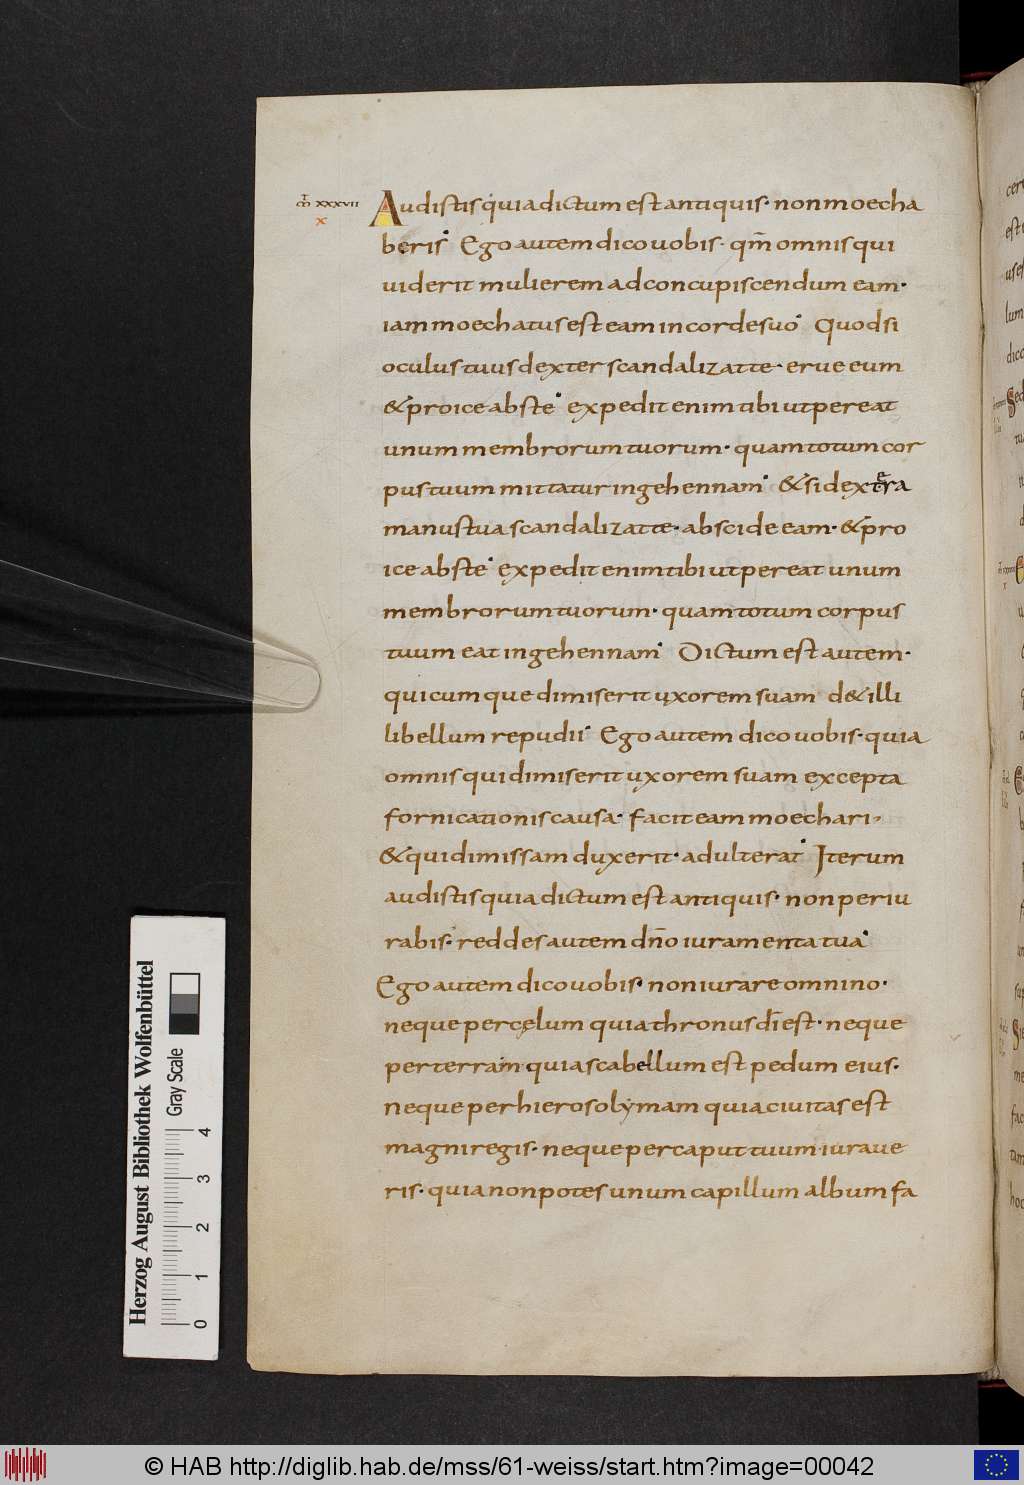 m̄ xxxvii
x
Audistis quia dictum est antiquis· non moecha
beris· Ego autem dico uobis· qm̄ omnis qui
uiderit mulierem ad concupiscendum eam·
iam moechatus est eam in corde suo· Quod si
oculus tuus dexter scandalizat te· erue eum
& proice abs te· expedit enim tibi ut pereat
unum membrorum tuorum· quam totum cor
pus tuum mittatur in gehennam· & si dextra
manus tua scandalizat te· abscide eam· & pro
ice abs te· expedit enim tibi ut pereat unum
membrorum tuorum· quam totum corpus
tuum eat in gehennam· Dictum est autem·
quicumque dimiserit uxorem suam d& illi
libellum repudii· Ego autem dico uobis· quia
omnis qui dimiserit uxorem suam excepta
fornicationis causa· facit eam moechari·
& qui dimissam duxerit· adulterat· Iterum
audistis quia dictum est antiquis· non periu
rabis· reddes autem dño iuramenta tua·
Ego autem dico uobis· non iurare omnino·
neque per cęlum quia thronus dī est· neque
per terram quia scabellum est pedum eius·
neque per hierosolymam quia ciuitas est
magni regis· neque per caput tuum iuraue
ris· quia non potes unum capillum album fa
Herzog August Bibliothek Wolfenbüttel
Gray Scale
0 1 2 3 4
© HAB http://diglib.hab.de/mss/61-weiss/start.htm?image=00042